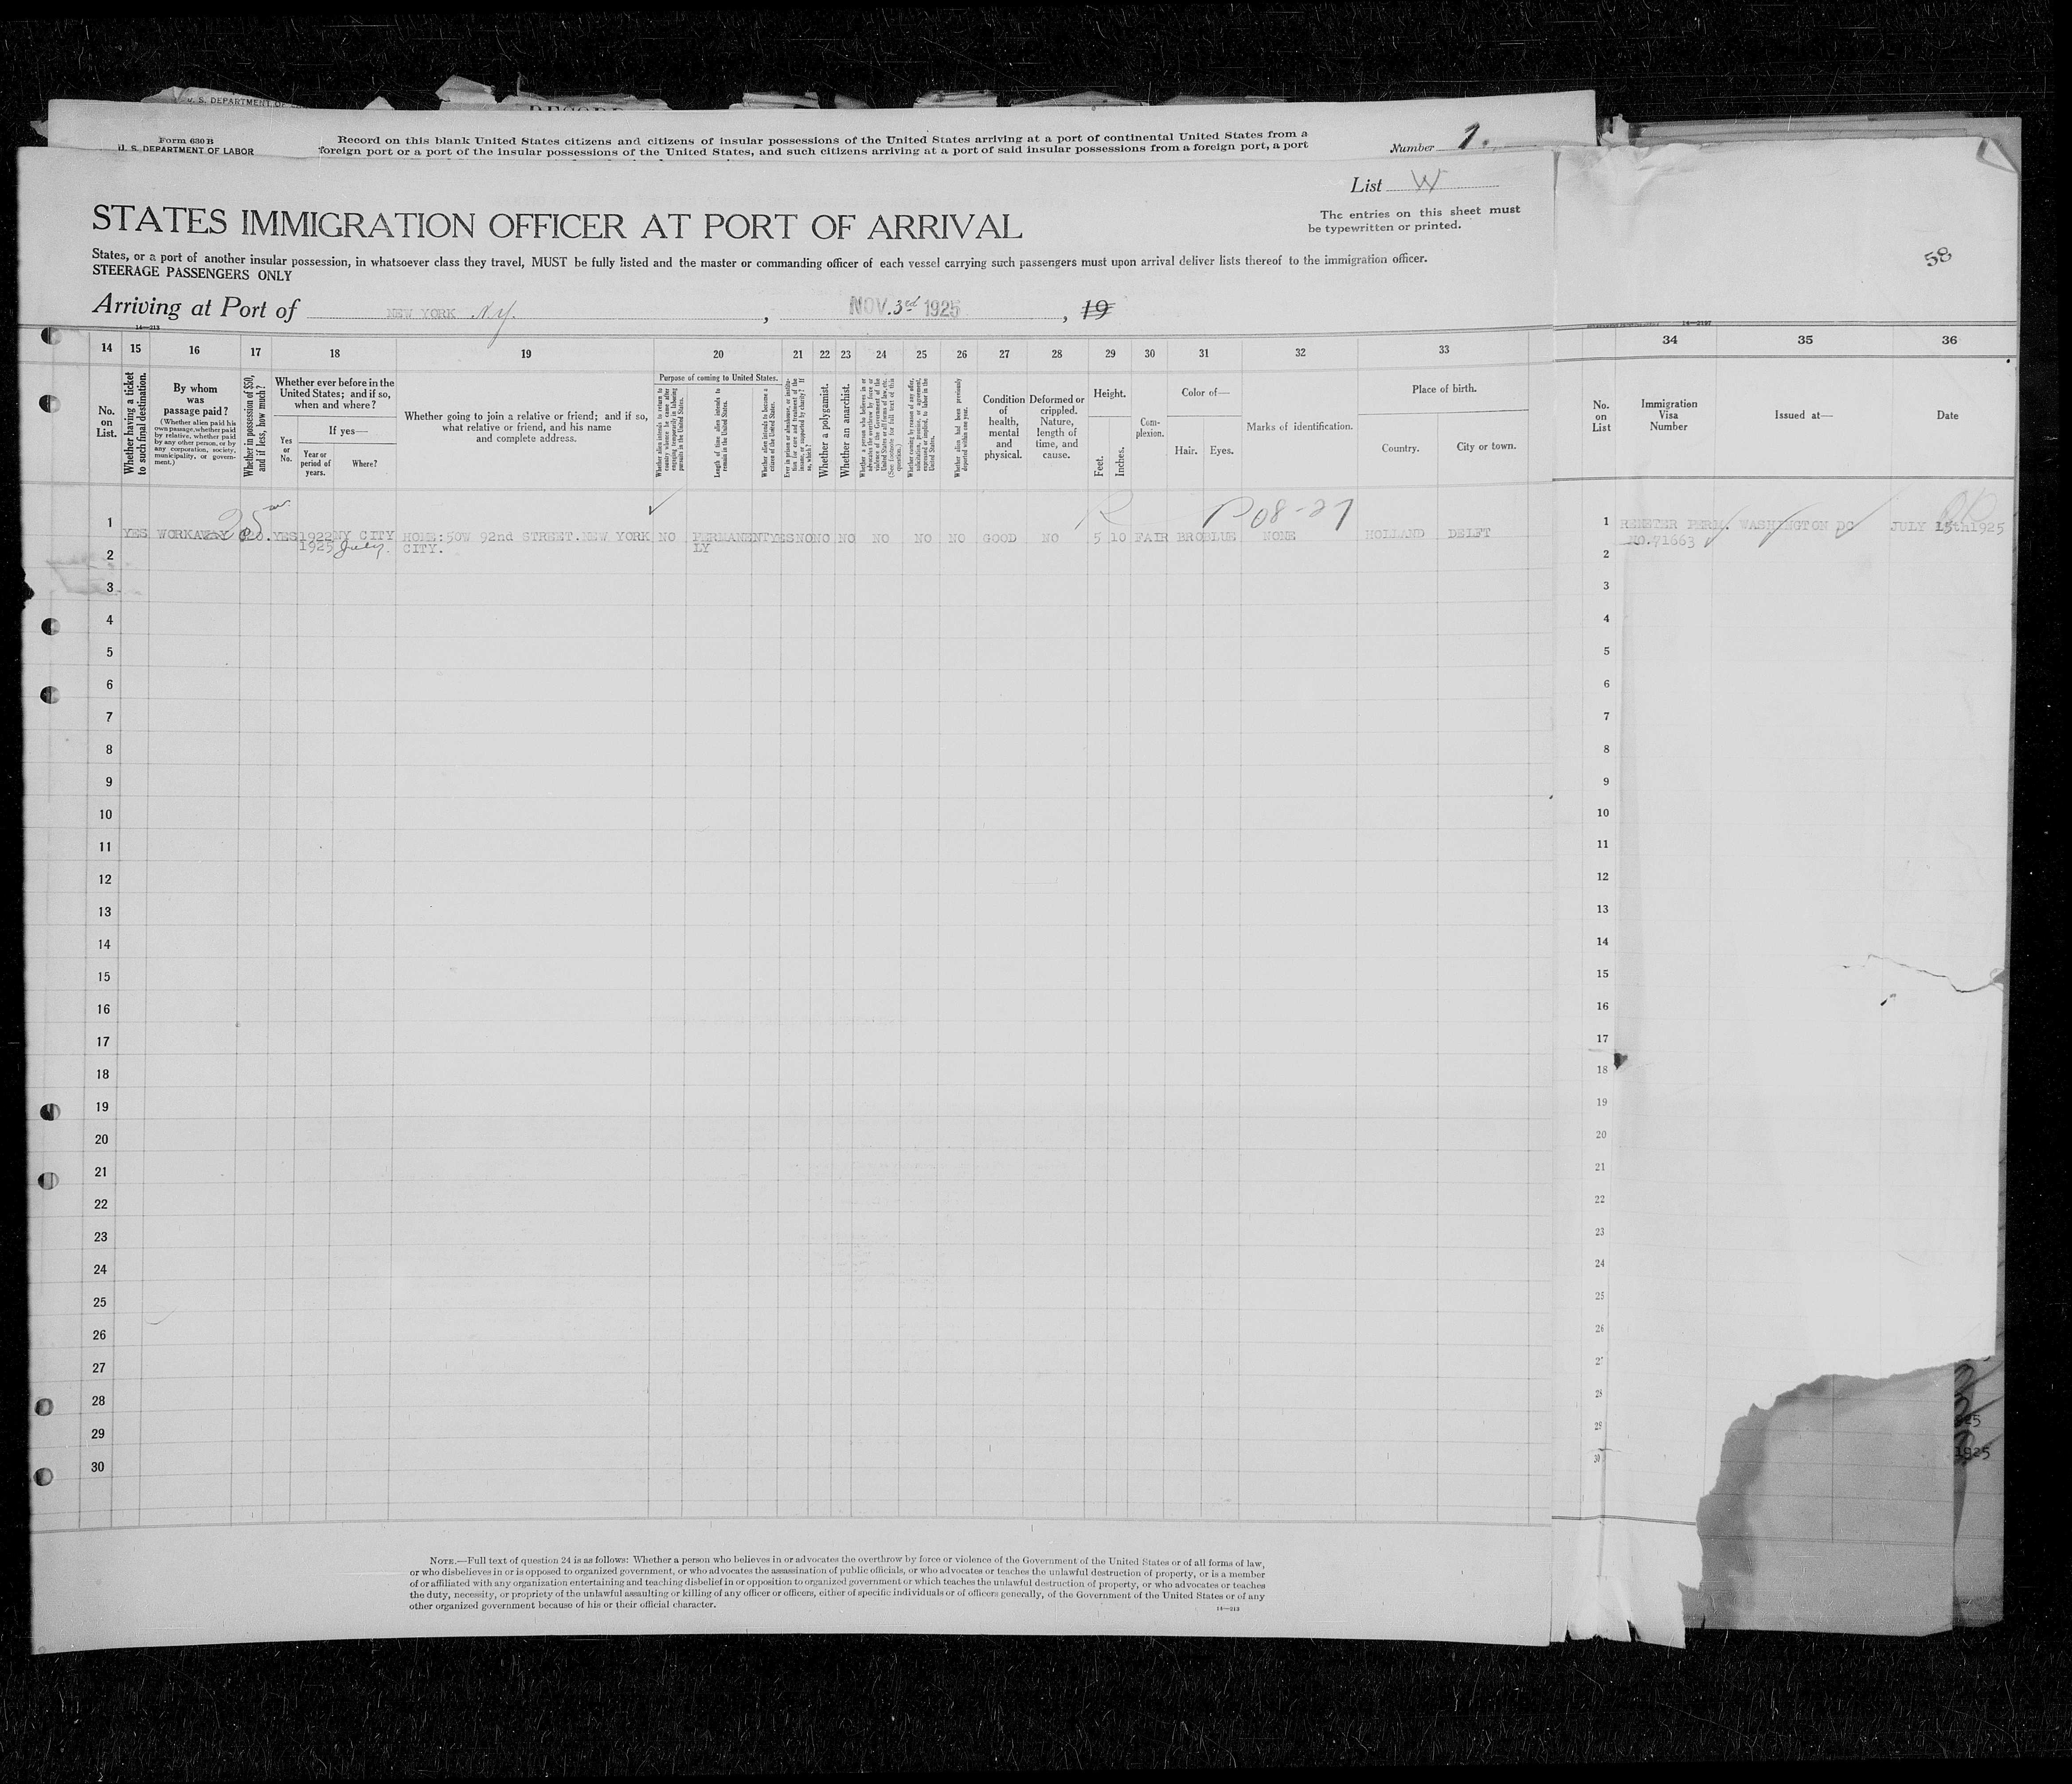 U. S. DEPARTMENT OF
Form 630 B
U. S. DEPARTMENT OF LABOR
Record on this blank United States citizens and citizens of insular possessions of the United States arriving at a port of continental United States from a
foreign port or a port of the insular possessions of the United States, and such citizens arriving at a port of said insular possessions from a foreign port, a port
Number 1.
List W
STATES IMMIGRATION OFFICER AT PORT OF ARRIVAL
The entries on this sheet must
be typewritten or printed.
States, or a port of another insular possession, in whatsoever class they travel, MUST be fully listed and the master or commanding officer of each vessel carrying such passengers must upon arrival deliver lists thereof to the immigration officer.
STEERAGE PASSENGERS ONLY
58
Arriving at Port of NEW YORK N.Y. , NOV. 3rd 1925 , 19
14—213
14—2197
14 15 16 17 18 19 20 21 22 23 24 25 26 27 28 29 30 31 32 33 34 35 36
No. on List.
Whether having a ticket to such final destination.
By whom was passage paid?
(Whether alien paid his own passage, whether paid by relative, whether paid by any other person, or by any corporation, society, municipality, or government.)
Whether in possession of $50, and if less, how much?
Whether ever before in the United States; and if so, when and where?
Yes or No.
If yes—
Year or period of years.
Where?
Whether going to join a relative or friend; and if so, what relative or friend, and his name and complete address.
Purpose of coming to United States.
Whether alien intends to return to country whence he came after engaging temporarily in laboring pursuits in the United States.
Length of time alien intends to remain in the United States.
Whether alien intends to become a citizen of the United States.
Ever in prison or almshouse, or institution for care and treatment of the insane, or supported by charity? If so, which?
Whether a polygamist.
Whether an anarchist.
Whether a person who believes in or advocates the overthrow by force or violence of the Government of the United States or all forms of law, etc. (See footnote for full text of this question.)
Whether coming by reason of any offer, solicitation, promise, or agreement, expressed or implied, to labor in the United States.
Whether alien had been previously deported within one year.
Condition of health, mental and physical.
Deformed or crippled. Nature, length of time, and cause.
Height.
Feet. Inches.
Complexion.
Color of—
Hair. Eyes.
Marks of identification.
Place of birth.
Country. City or town.
No. on List
Immigration Visa Number
Issued at—
Date
1 YES WORKAWAY 25 YES 1922 NY CITY HOME: 50W 92nd STREET. NEW YORK NO PERMANENT YES NO NO NO NO NO NO GOOD NO 5 10 FAIR BRO BLUE NONE HOLLAND DELFT
1925 July. CITY. LY
P08-27
1 REENTER PERM. WASHINGTON DC JULY 15th 1925
NO. 71663
2 2
3 3
4 4
5 5
6 6
7 7
8 8
9 9
10 10
11 11
12 12
13 13
14 14
15 15
16 16
17 17
18 18
19 19
20 20
21 21
22 22
23 23
24 24
25 25
26 26
27
28
29
30 30
1925
NOTE.—Full text of question 24 is as follows: Whether a person who believes in or advocates the overthrow by force or violence of the Government of the United States or of all forms of law,
or who disbelieves in or is opposed to organized government, or who advocates the assassination of public officials, or who advocates or teaches the unlawful destruction of property, or is a member
of or affiliated with any organization entertaining and teaching disbelief in or opposition to organized government or which teaches the unlawful destruction of property, or who advocates or teaches
the duty, necessity, or propriety of the unlawful assaulting or killing of any officer or officers, either of specific individuals or of officers generally, of the Government of the United States or of any
other organized government because of his or their official character.
14—213